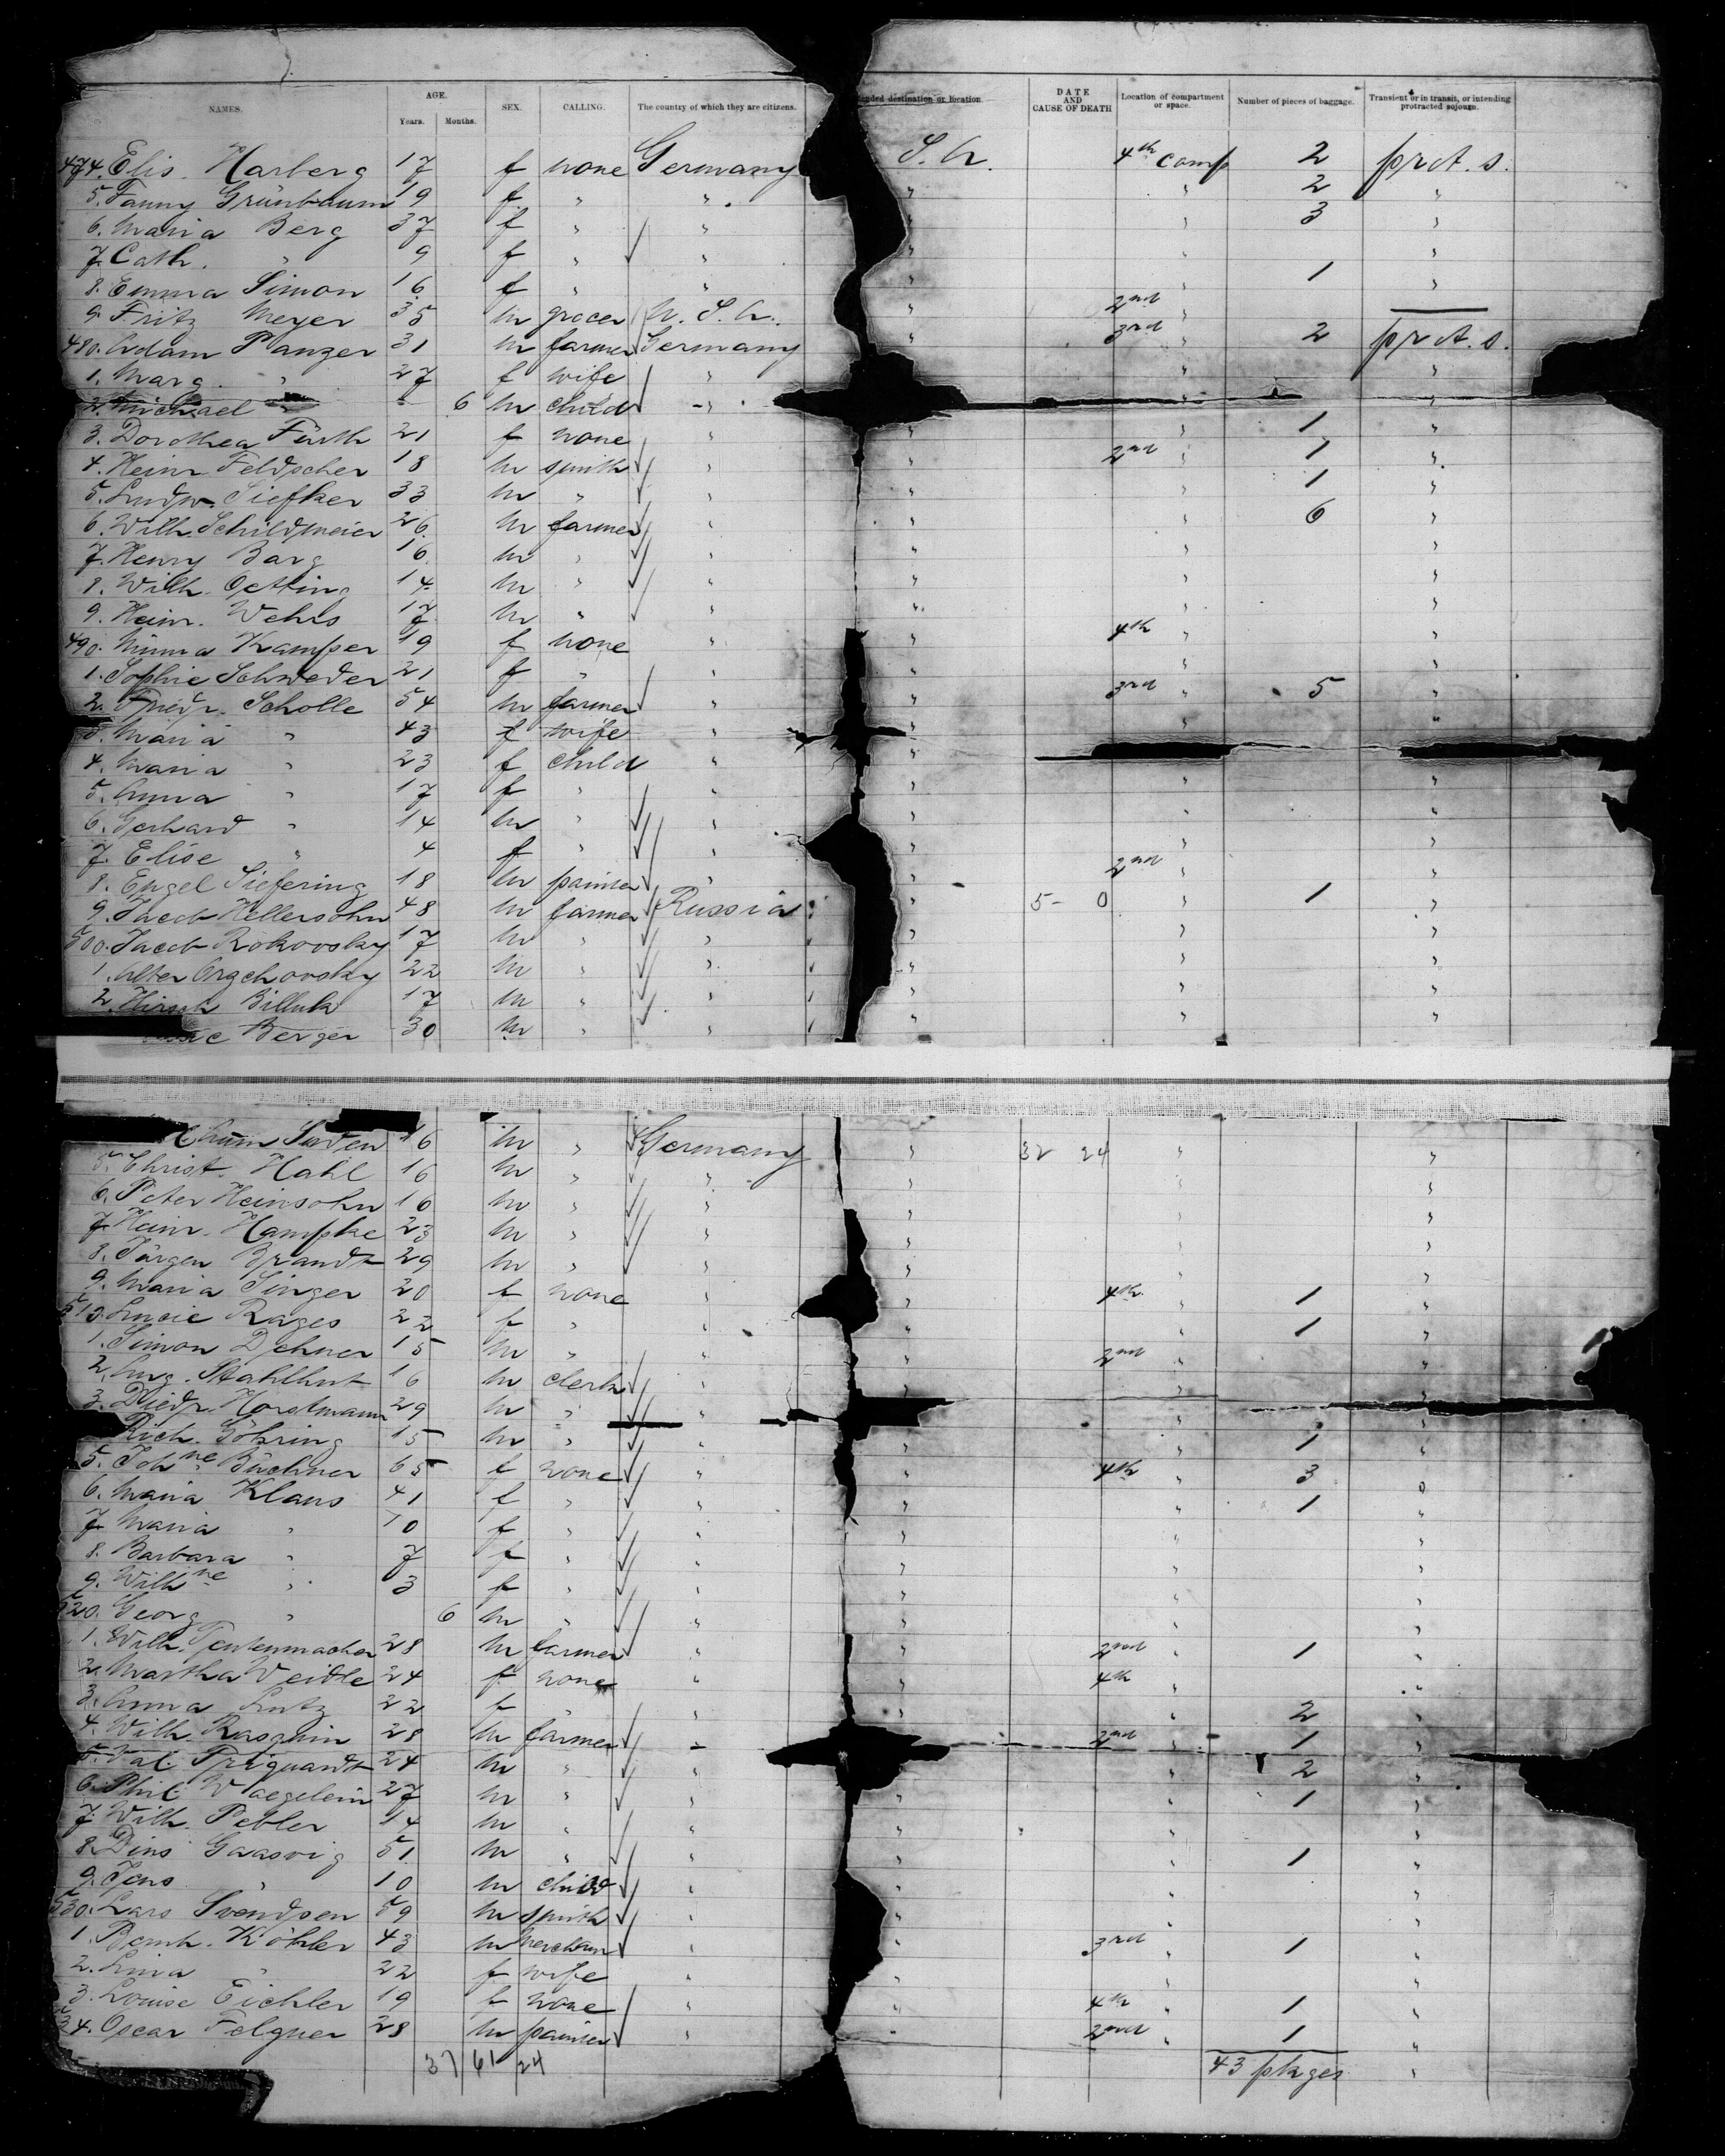 NAMES. AGE. Years. Months. SEX. CALLING. The country of which they are citizens. ended destination or location. DATE AND CAUSE OF DEATH Location of compartment or space. Number of pieces of baggage. Transient or in transit, or intending protracted sojourn.
474. Elis. Harberg 17 f none Germany S. A. 4th comp 2 prct. s.
5. Fanny Grünbaum 19 f " " " " 2 "
6. Maria Berg 37 f " " " " 3 "
7. Cath. " 9 f " " " " "
8. Emma Simon 16 f " " " " 1 "
9. Fritz Meyer 35 m grocer U. S. A. " 2nd "
480. Adam Panzer 31 m farmer Germany " 3rd " 2 prct. s.
1. Marg. " 27 f wife " " "
2. Michael " 6 m child " " "
3. Dorothea Fürth 21 f none " " " 1 "
4. Heinr. Feldscher 18 m smith " " 2nd " 1 "
5. Ludw. Siefker 33 m " " " " 1 "
6. Wilh. Schildmeier 26 m farmer " " " 6 "
7. Henry Barg 16 m " " " " "
8. Wilh. Oetting 14 m " " " " "
9. Heinr. Wehrs 17 m " " " " "
490. Minna Kamper 19 f none " " 4th " "
1. Sophie Schweder 21 f " " " " "
2. Friedr. Scholle 54 m farmer " " 3rd " 5 "
3. Maria " 43 f wife " " " "
4. Maria " 23 f child " "
5. Anna " 17 f " " " " "
6. Gerhard " 14 m " " " " "
7. Elise " 4 f " " " " "
8. Engel Siefering 18 m painter " " 2nd " "
9. Jacob Hellersohn 48 m farmer Russia " 5 - 0 " 1 "
500. Jacob Rokovsky 17 m " " " " "
1. Alter Orzchovsky 22 m " " " " "
2. Hirsch Billuk 17 m " " " " "
Berger 30 m " " " " "
Suden 16 m " Germany " 32 24 " "
5. Christ. Hahl 16 m " " " " "
6. Peter Heinsohn 16 m " " " " "
7. Heinr. Hampke 23 m " " " " "
8. Jürgen Brandt 29 m " " " " "
9. Maria Singer 20 f none " " 4th " 1 "
510. Lucie Rages 22 f " " " " 1 "
1. Simon Dehner 15 m " " " 2nd " "
2. Aug. Stahlhut 16 m clerk " " " "
3. Diedr. Horstmann 29 m " " " "
Rich. Göhring 15 m " " " " 1 "
5. Johne Büchner 65 f none " " 4th " 3 "
6. Maria Klaus 41 f " " " " 1 "
7. Maria " 10 f " " " " "
8. Barbara " 7 f " " " " "
9. Wilhne " 3 f " " " " "
520. Georg " 6 m " " " " "
1. Wilh. 28 m farmer " " 2nd " 1 "
2. Martha Veidle 24 f none " " 4th " "
3. Anna Lutz 22 f " " " 2 "
4. Wilh. Rasghin 28 m farmer " 2nd " 1 "
5. Val. 24 m " " " " 2 "
6. Phil. Waegelein 27 m " " " " 1 "
7. Wilh. Pebler 14 m " " " " "
8. Dins Gaasvig 51 m " " " " 1 "
9. Jens " 10 m child " " " "
530. Lars Svendsen 59 m smith " " " "
1. Bernh. Köhler 43 m merchan " " 3rd " 1 "
2. Lina " 22 f wife " " " "
3. Louise Eichler 19 f none " " 4th " 1 "
534. Oscar Felgner 28 m painter " " 2nd " 1 "
37 61 24 43 pkges "